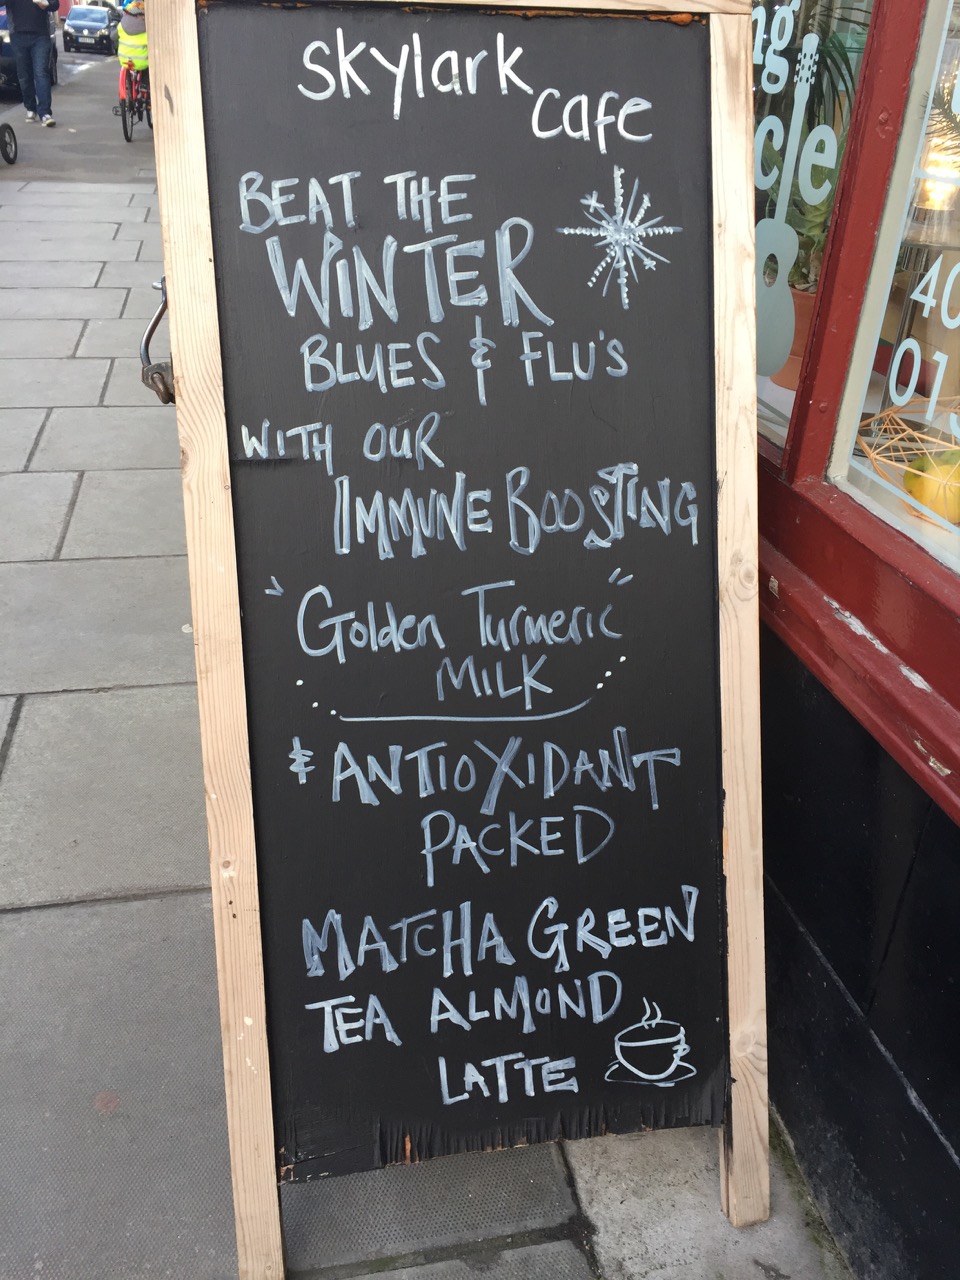 skylark
cafe
BEAT THE
WINTER
BLUES & FLU'S
WITH OUR
IMMUNE BOOSTING
"Golden Turmeric"
MILK
& ANTIOXIDANT
PACKED
MATCHA GREEN
TEA ALMOND
LATTE
ng
cle
40
01